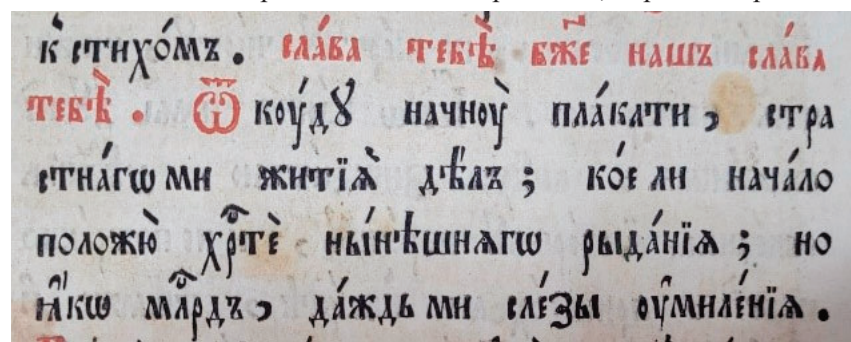 к̾ стихо́мъ . сла́ва тебѣ̀ бж҃е нашъ сла́ва
тебѣ̀ . Ѿ коу́дꙋ начноу̀ пла́кати , стра
стна́гѡ ми житїѧ̀ дѣ́лъ ; ко́е ли нача́ло
положю̀ хрⷭ҇тѐ ны́нѣшнѧгѡ рыда́нїѧ ; но
ꙗ҆́кѡ млⷭ҇рдъ , да́ждь ми сле́зы оу҆миле́нїѧ .